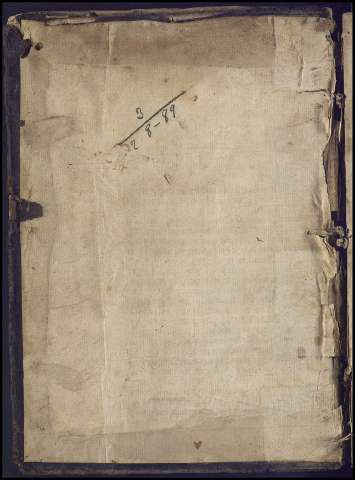 3
28-89